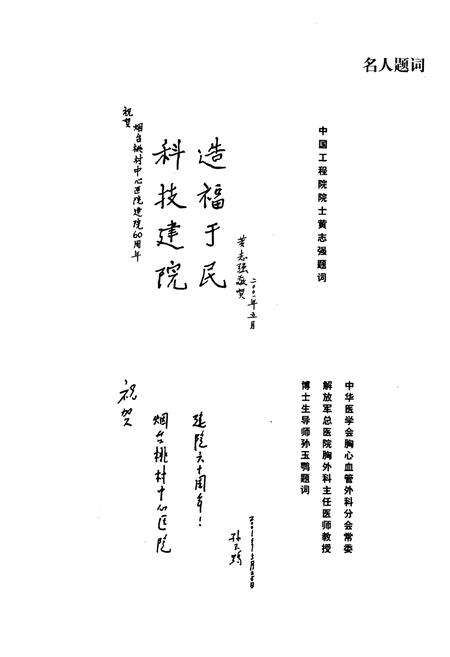 名人题词
中国工程院院士黄志强题词
祝贺
烟台桃村中心医院建院60周年
科技建院
造福于民
黄志强敬贺
二〇〇一年五月
中华医学会胸心血管外科分会常委
解放军总医院胸外科主任医师教授
博士生导师孙玉鹗题词
祝贺
烟台桃村中心医院
建院六十周年！
孙玉鹗